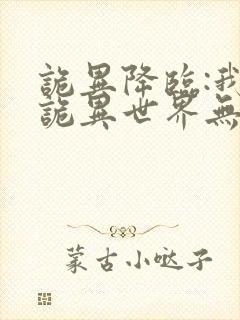 詭異降臨:我
詭異世界無
蒙古小噠子